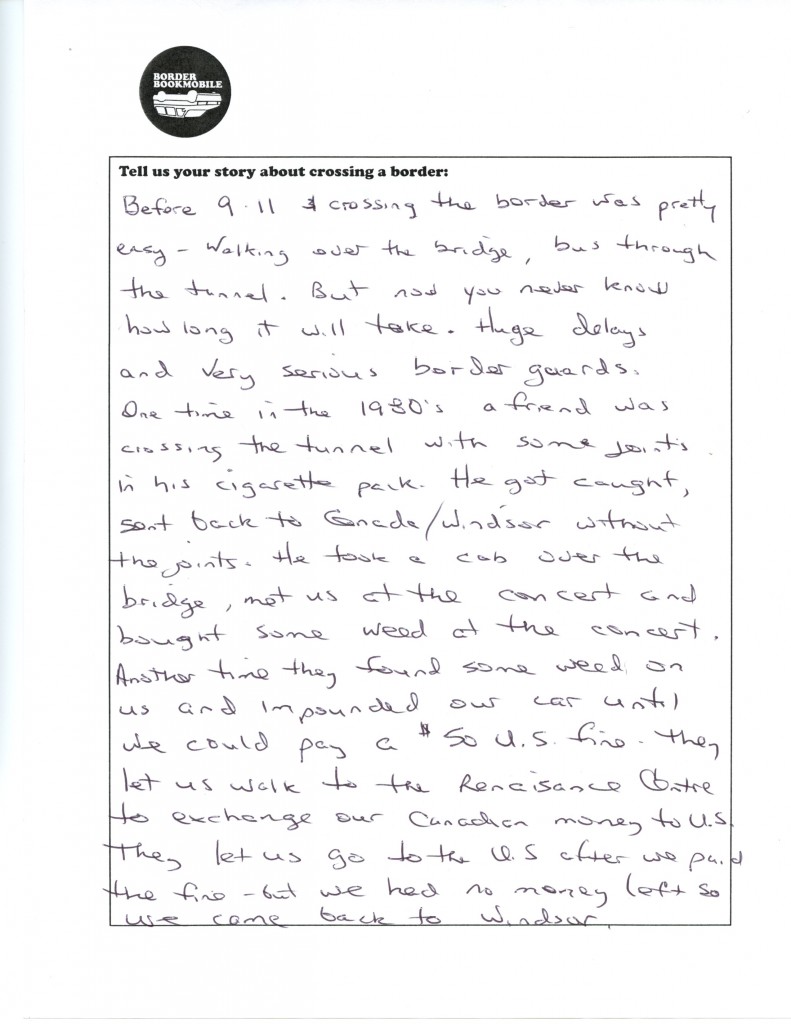 BORDER
BOOKMOBILE
Tell us your story about crossing a border:
Before 9.11 crossing the border was pretty
easy - Walking over the bridge, bus through
the tunnel. But now you never know
how long it will take. Huge delays
and very serious border guards.
One time in the 1980's a friend was
crossing the tunnel with some joints
in his cigarette pack. He got caught,
sent back to Canada/Windsor without
the joints. He took a cab over the
bridge, met us at the concert and
bought some weed at the concert.
Another time they found some weed on
us and impounded our car until
we could pay a $50 U.S. fine. They
let us walk to the Renaisance Centre
to exchange our Canadian money to U.S.
They let us go to the U.S after we paid
the fine - but we had no money left so
we came back to Windsor.